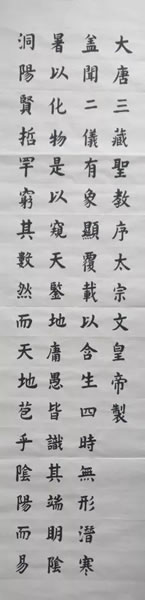 大唐三藏聖教序太宗文皇帝製
蓋聞二儀有象顯覆載以含生四時無形潛寒
暑以化物是以窺天鑒地庸愚皆識其端明陰
洞陽賢哲罕窮其數然而天地苞乎陰陽而易